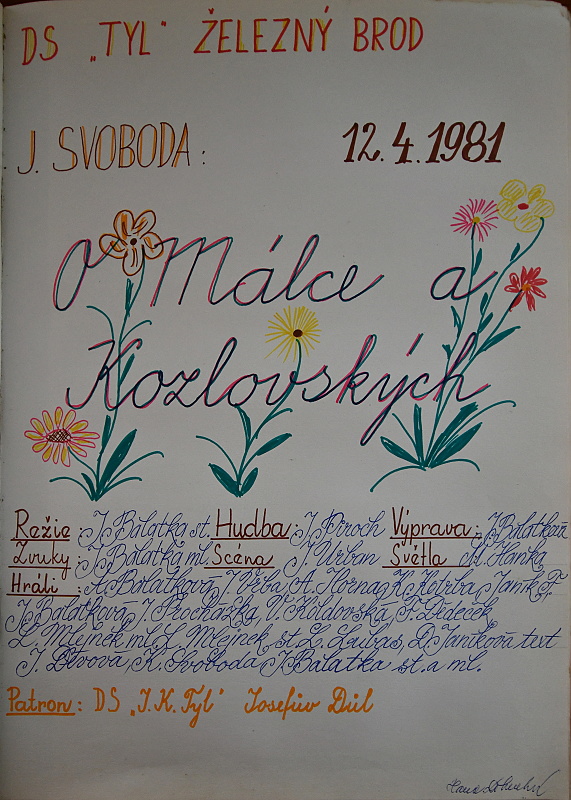 DS „TYL" ŽELEZNÝ BROD
J. SVOBODA: 12.4.1981
O Málce a
Kozlovských
Režie: J. Balatka st. Hudba: J. Piroch Výprava: J. Balatková
Zvuky: J. Balatka ml. Scéna J. Urban Světla M. Hanka
Hráli: A. Balatková, J. Vrba, A. Hornag K. Kotrba, Janík F.
J. Balatková, J. Procházka, V. Koldovská, F. Dědeček,
L. Mlejnek ml. L. Mlejnek st. Z. D. Janíková text
J. K. Svoboda J. Balatka st. a ml.
Patron: DS „J. K. Tyl" Josefův Důl